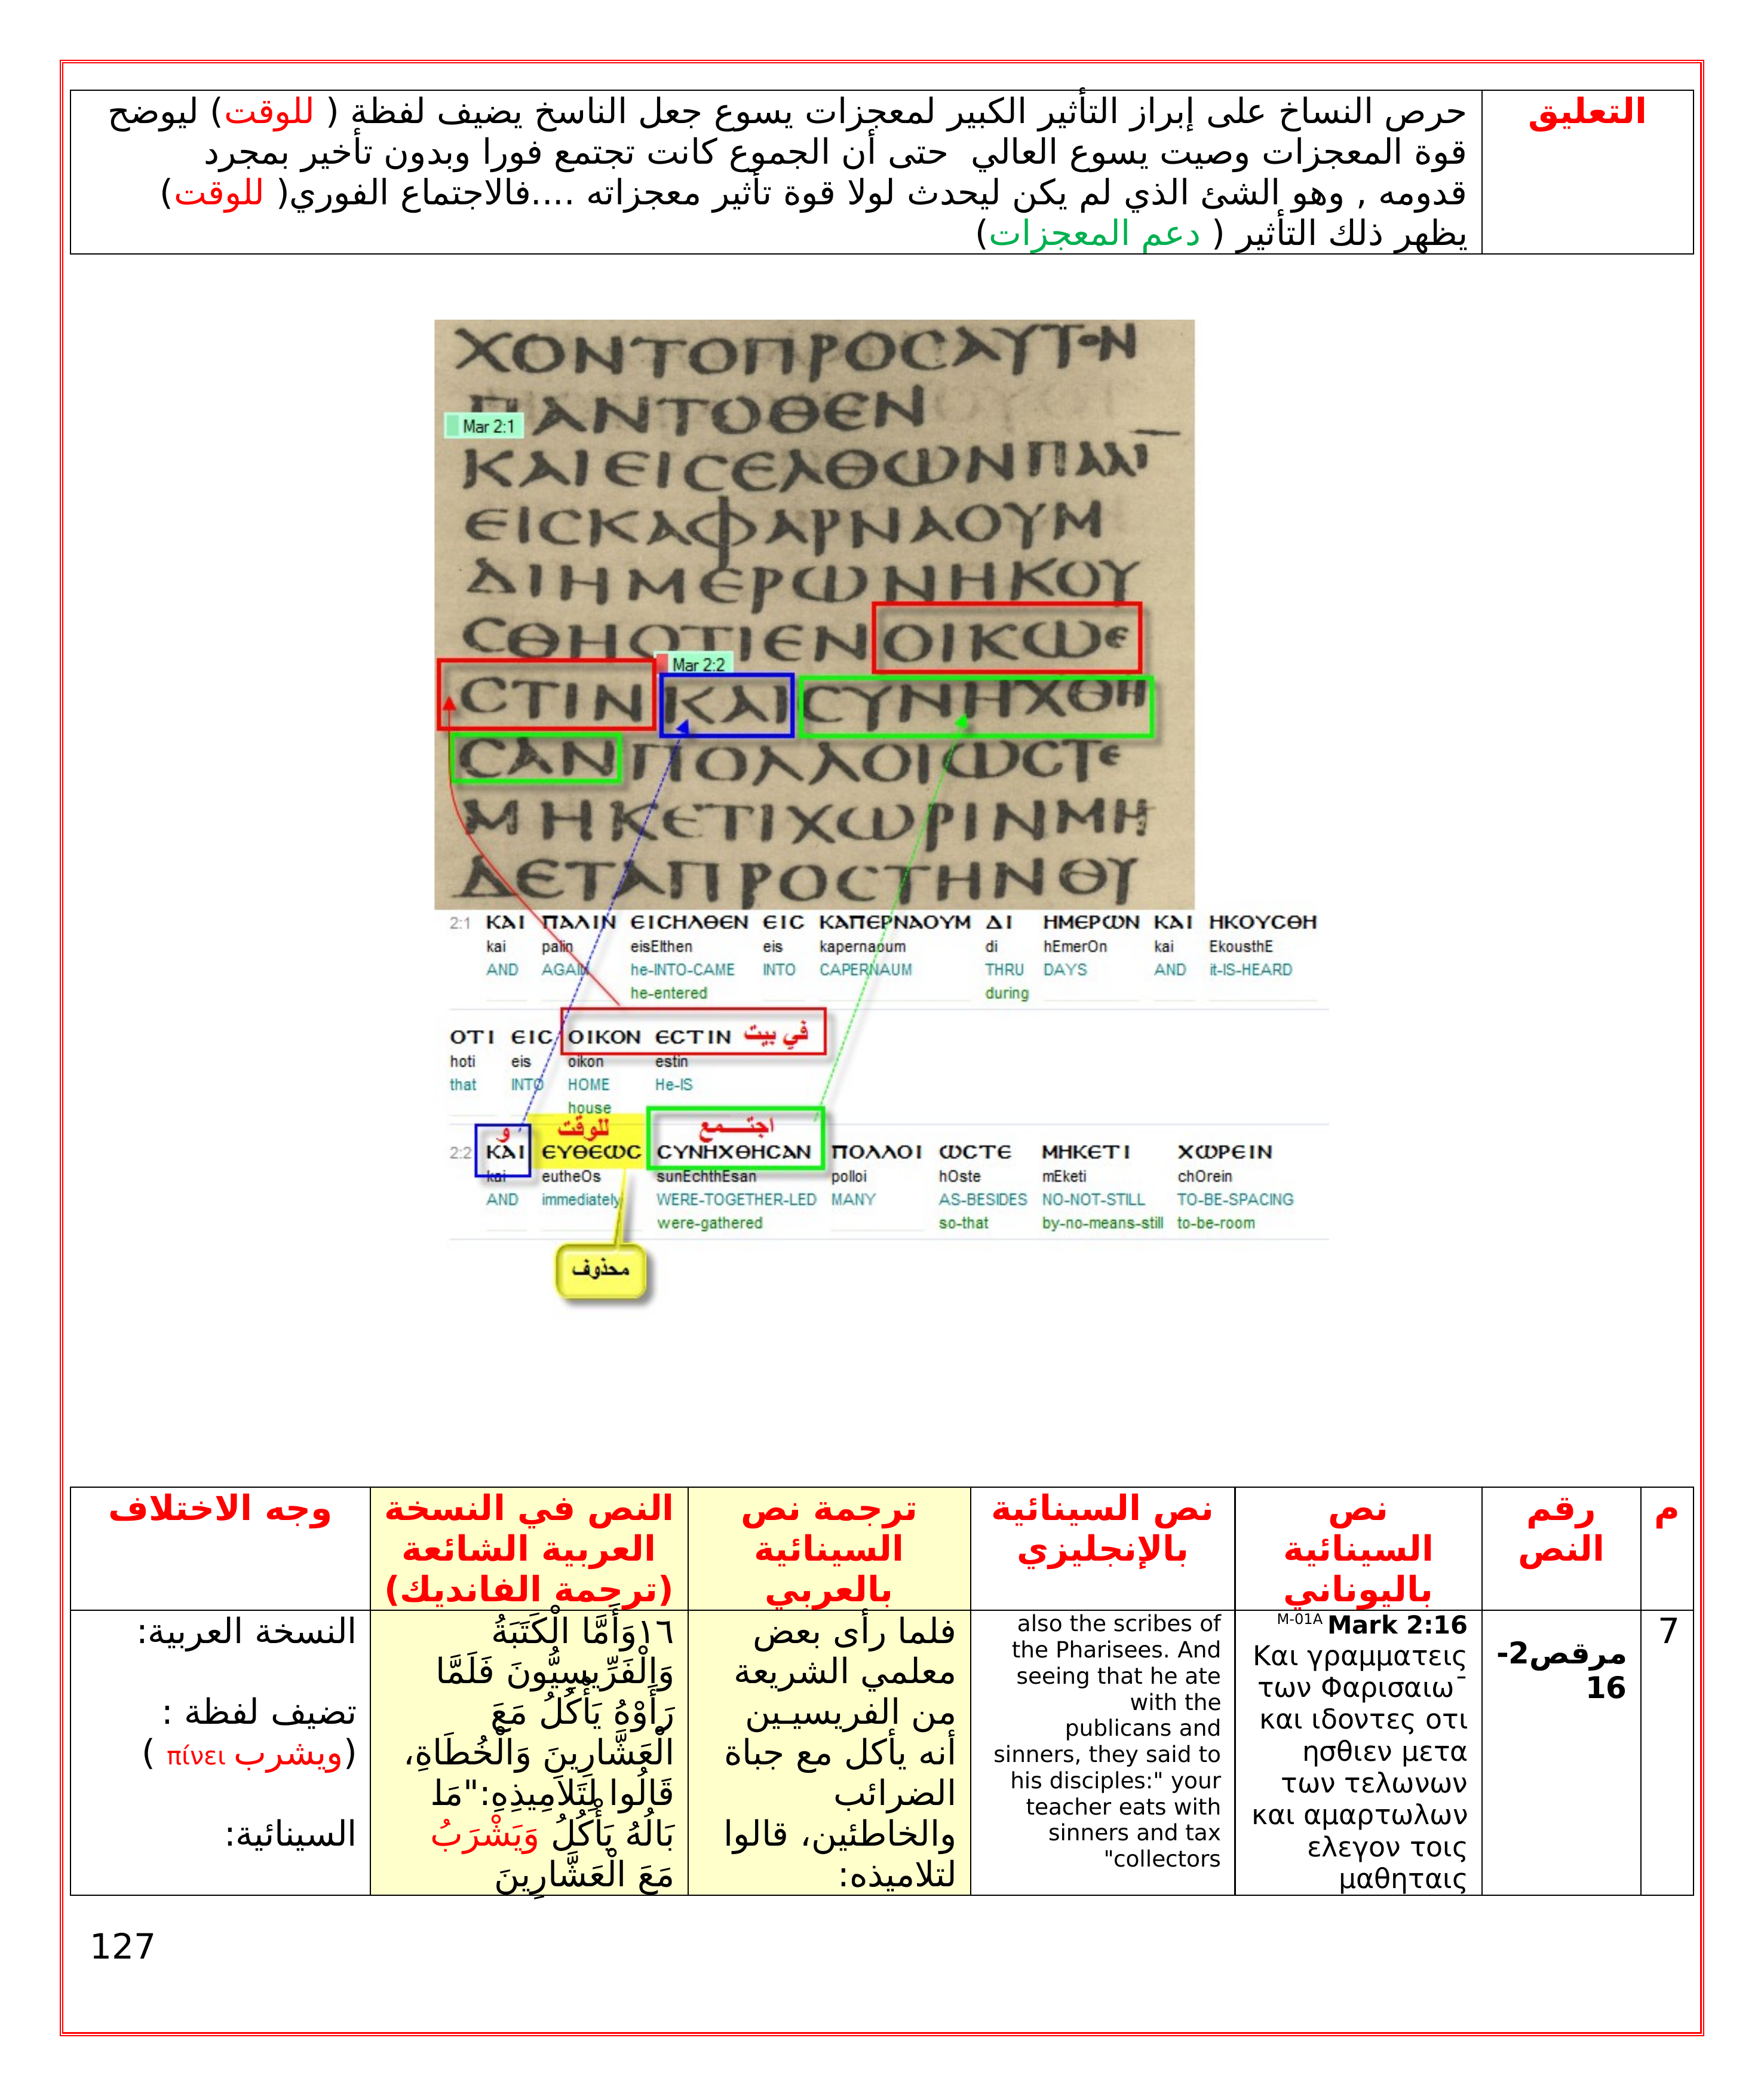 التعليق
حرص النساخ على إبراز التأثير الكبير لمعجزات يسوع جعل الناسخ يضيف لفظة ( للوقت) ليوضح
قوة المعجزات وصيت يسوع العالي  حتى أن الجموع كانت تجتمع فورا وبدون تأخير بمجرد
قدومه , وهو الشئ الذي لم يكن ليحدث لولا قوة تأثير معجزاته ....فالاجتماع الفوري( للوقت)
يظهر ذلك التأثير ( دعم المعجزات)
ΧΟΝΤΟΠΡΟCΑΥΤΟΝ
ΠΑΝΤΟΘΕΝ
Mar 2:1
ΚΑΙΕΙCΕΛΘΩΝΠΑΛΙ
ΕΙCΚΑΦΑΡΝΑΟΥΜ
ΔΙΗΜΕΡΩΝΗΚΟΥ
CΘΗΟΤΙΕΝΟΙΚΩΕ
Mar 2:2
CΤΙΝΚΑΙCΥΝΗΧΘΗ
CΑΝΠΟΛΛΟΙΩCΤΕ
ΜΗΚΕΤΙΧΩΡΙΝΜΗ
ΔΕΤΑΠΡΟCΤΗΝΘΥ
2:1 ΚΑΙ ΠΑΛΙΝ ΕΙCΗΛΘΕΝ ΕΙC ΚΑΠΕΡΝΑΟΥΜ ΔΙ ΗΜΕΡΩΝ ΚΑΙ ΗΚΟΥCΘΗ
kai palin eisElthen eis kapernaoum di hEmerOn kai EkousthE
AND AGAIN he-INTO-CAME INTO CAPERNAUM THRU DAYS AND it-IS-HEARD
he-entered during
ΟΤΙ ΕΙC ΟΙΚΟΝ ΕCΤΙΝ في بيت
hoti eis oikon estin
that INTO HOME He-IS
house
و للوقت اجتـــمع
2:2 ΚΑΙ ΕΥΘΕΩC CΥΝΗΧΘΗCΑΝ ΠΟΛΛΟΙ ΩCΤΕ ΜΗΚΕΤΙ ΧΩΡΕΙΝ
kai eutheOs sunEchthEsan polloi hOste mEketi chOrein
AND immediately WERE-TOGETHER-LED MANY AS-BESIDES NO-NOT-STILL TO-BE-SPACING
were-gathered so-that by-no-means-still to-be-room
محذوف
م
رقم
النص
نص
السينائية
باليوناني
نص السينائية
بالإنجليزي
ترجمة نص
السينائية
بالعربي
النص في النسخة
العربية الشائعة
(ترجمة الفانديك)
وجه الاختلاف
7
مرقص2-
16
M-01A Mark 2:16
Και γραμματεις
των Φαρισαιω¯
και ιδοντες οτι
ησθιεν μετα
των τελωνων
και αμαρτωλων
ελεγον τοις
μαθηταις
also the scribes of
the Pharisees. And
seeing that he ate
with the
publicans and
sinners, they said to
his disciples:" your
teacher eats with
sinners and tax
"collectors
فلما رأى بعض
معلمي الشريعة
من الفريسيـين
أنه يأكل مع جباة
الضرائب
والخاطئين، قالوا
لتلاميذه:
١٦وَأَمَّا الْكَتَبَةُ
وَالْفَرِّيسِيُّونَ فَلَمَّا
رَأَوْهُ يَأْكُلُ مَعَ
الْعَشَّارِينَ وَالْخُطَاةِ،
قَالُوا لِتَلاَمِيذِهِ:"مَا
بَالُهُ يَأْكُلُ وَيَشْرَبُ
مَعَ الْعَشَّارِينَ
النسخة العربية:
تضيف لفظة :
(ويشرب πίνει )
السينائية:
127